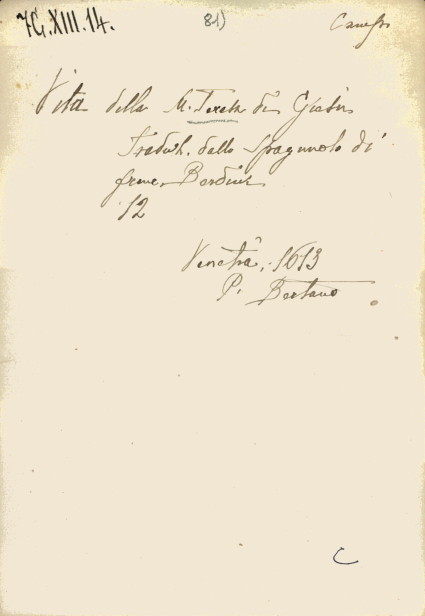 7G.XIII.14.
81)
Vita della M. Teresa di Giesù
Tradott. dallo Spagnuolo di
Franc. Bordini
12
Venetia, 1613
P. Bertano
C